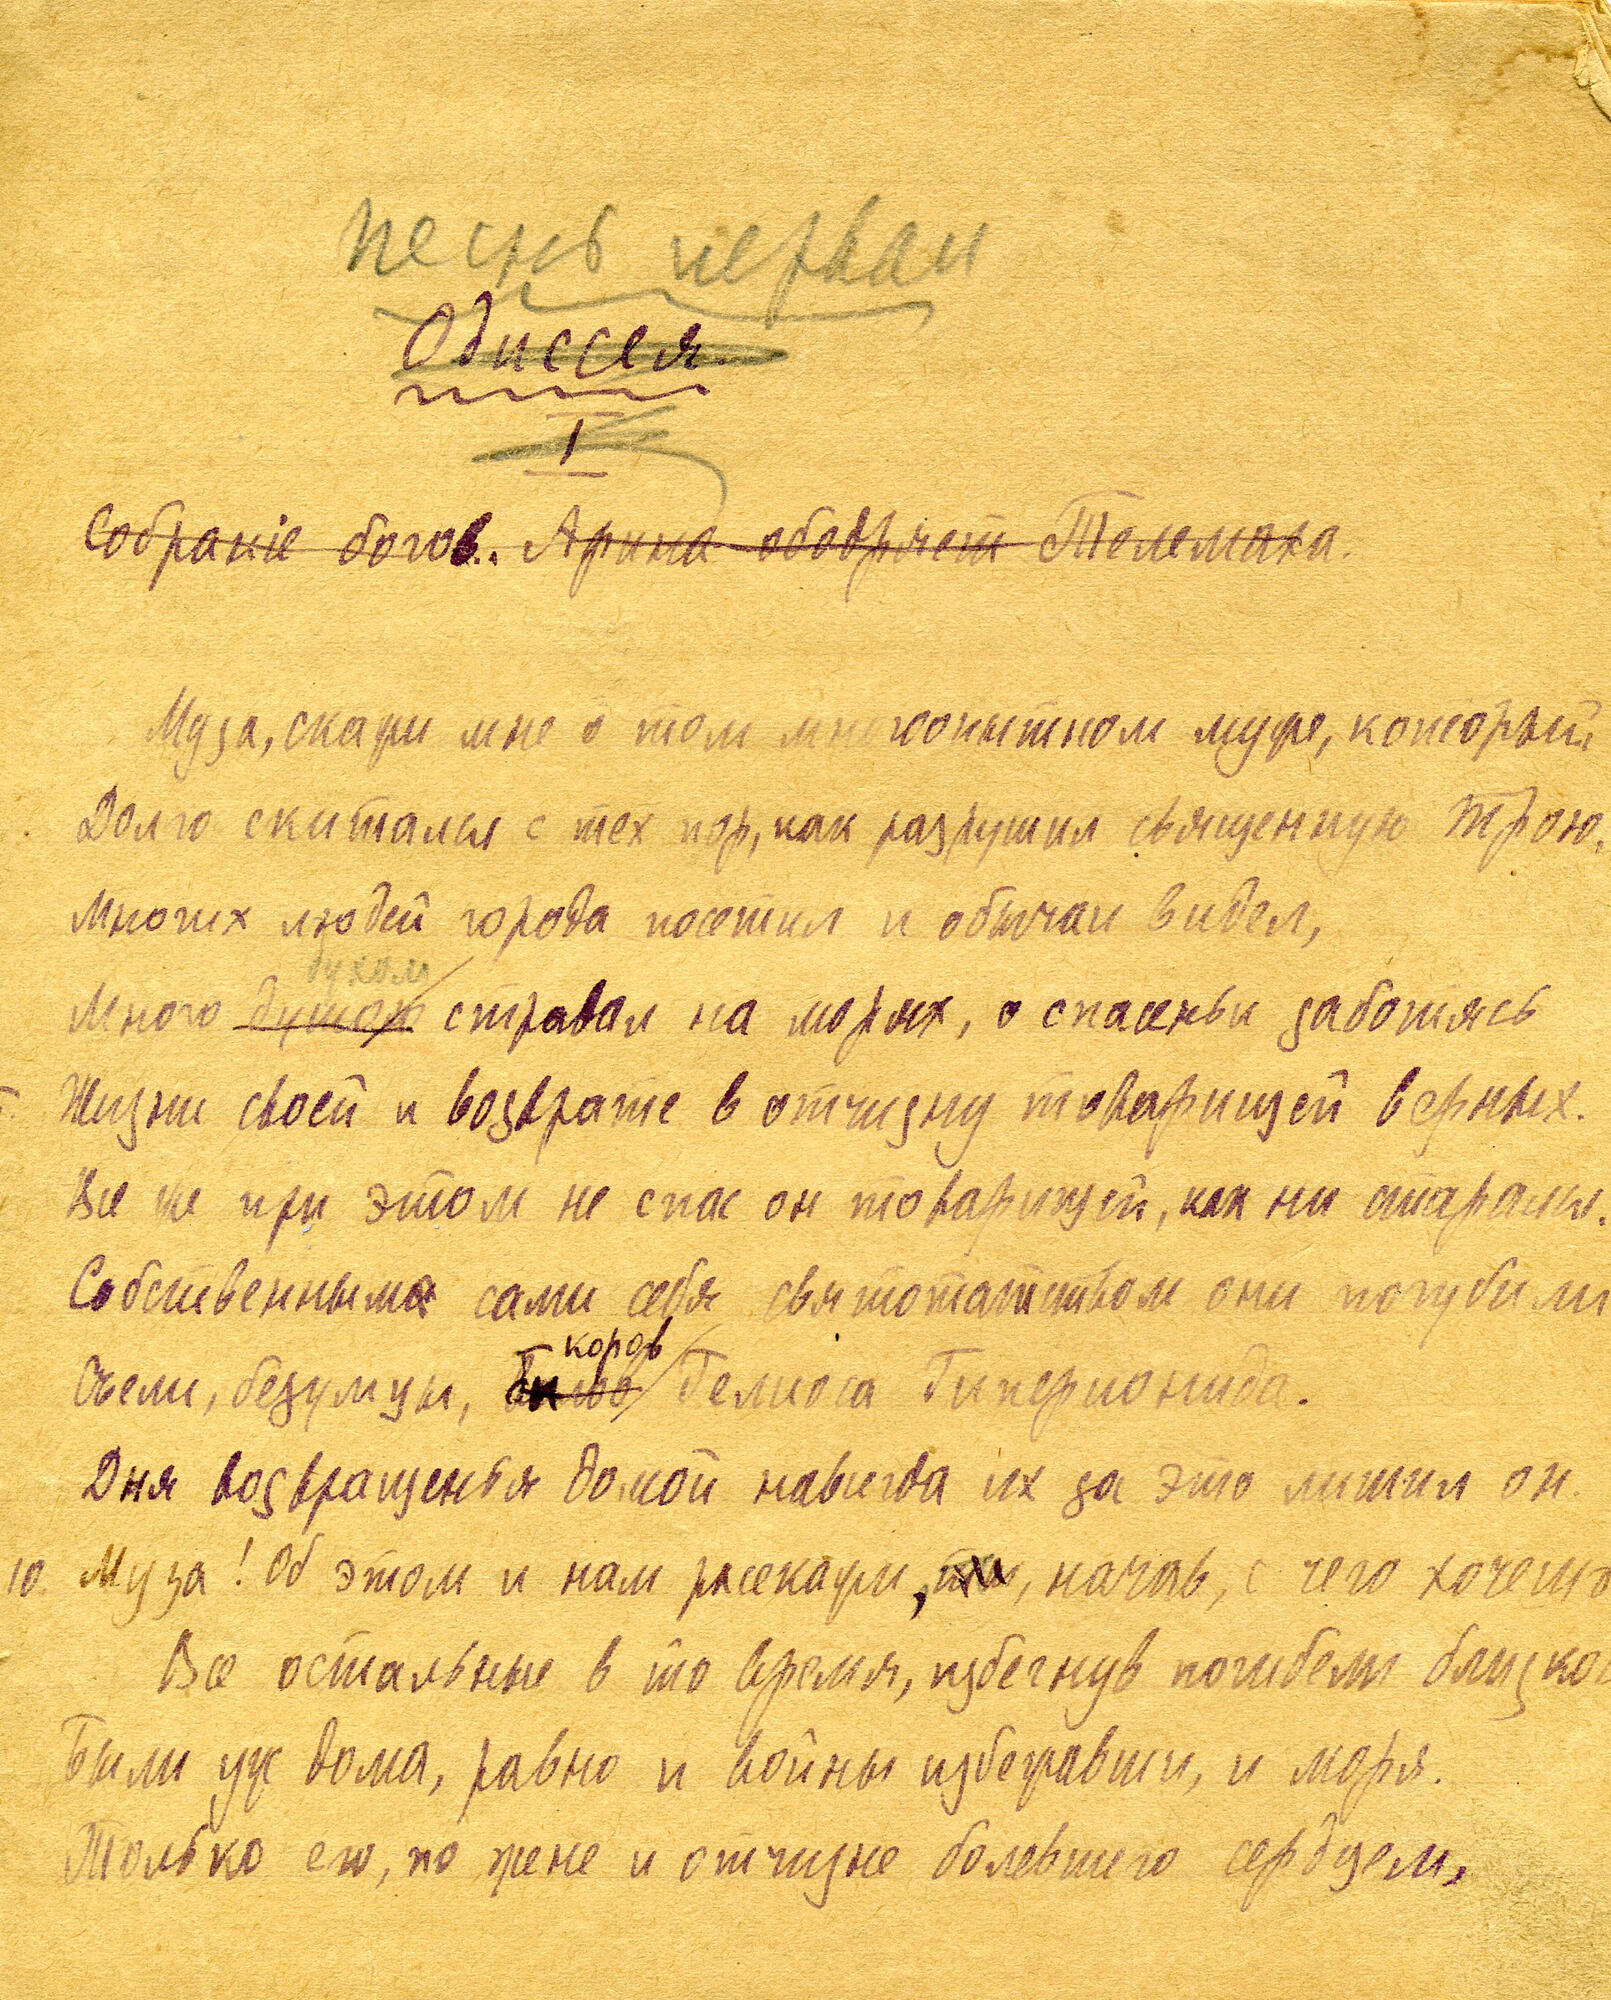 Песнь первая
Одиссея
I
Собрание богов. Афина ободряет Телемаха.
Муза, скажи мне о том многоопытном муже, который
Долго скитался с тех пор, как разрушил священную Трою,
Многих людей города посетил и обычаи видел,
духом
Много душою страдал на морях, о спасеньи заботясь
5. Жизни своей и возврате в отчизну товарищей верных.
Все же при этом не спас он товарищей, как ни старался.
Собственным сами себя святотатством они погубили
коров
Съели, безумцы, быков Гелиоса Гиперионида.
Дня возвращенья домой навсегда их за это лишил он.
10. Муза! Об этом и нам расскажи, начав, с чего хочешь
Все остальные в то время, избегнув погибели близкой
Были уж дома, равно и войны избежавши, и моря.
Только его, по жене и отчизне болевшего сердцем,